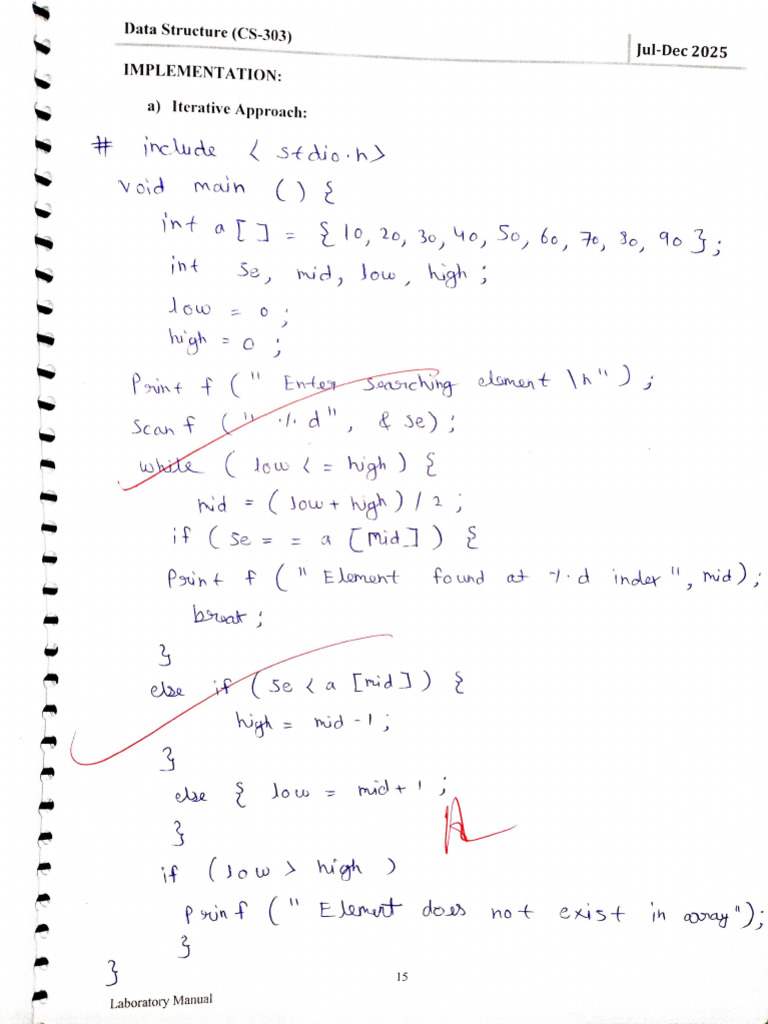 Data Structure (CS-303)
Jul-Dec 2025
IMPLEMENTATION:
a) Iterative Approach:
# include < stdio.h>
void main () {
int a [ ] = { 10, 20, 30, 40, 50, 60, 70, 80, 90 };
int se, mid, low, high;
low = 0 ;
high = 0 ;
Print f (" Enter searching element \n");
Scan f (" % d", & se);
while ( low < = high ) {
mid = (low + high) / 2 ;
if ( se = = a [mid] ) {
Print f (" Element found at % d index", mid);
break ;
}
else if ( se < a [mid] ) {
high = mid -1 ;
}
else { low = mid + 1 ;
}
if (low > high )
Prinf (" Element does not exist in array");
}
}
15
Laboratory Manual